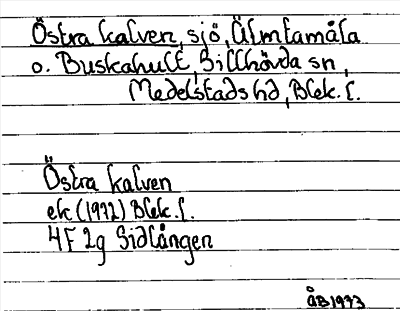 Östra kalven, sjö, Älmtamåla
o. Buskahult, Sillhövda sn,
Medelstads hd, Blek. l.
Östra kalven
ek (1972) Blek. l.
4F 2g Sidlången
ÅB 1973